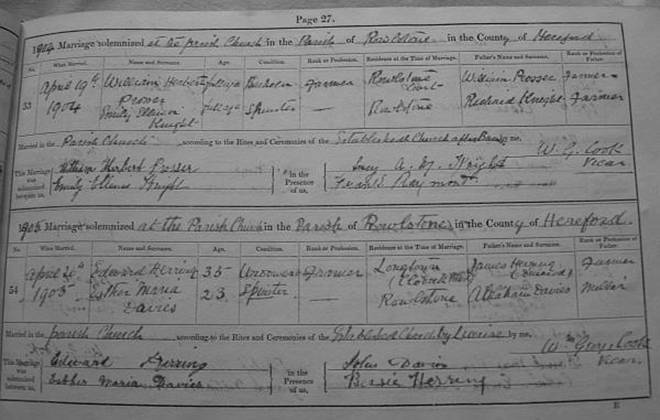 Page 27.
1904 Marriage solemnized at the parish Church in the Parish of Rowlstone in the County of Hereford
No. When Married. Name and Surname. Age. Condition. Rank or Profession. Residence at the Time of Marriage. Father's Name and Surname. Rank or Profession of Father.
53 April 19th 1904 William Herbert Prosser full age Bachelor Farmer Rowlstone Court William Prosser Farmer
Emily Ellinor Knight full age Spinster — Rowlstone Richard Knight Farmer
Married in the Parish Church according to the Rites and Ceremonies of the Established Church after Banns by me,
W. G. Cook
Vicar
This Marriage was solemnized between us,
William Herbert Prosser
Emily Ellinor Knight
in the Presence of us,
Lucy A. M. Wright
Raymont
1905 Marriage solemnized at the Parish Church in the Parish of Rowlstone in the County of Hereford.
No. When Married. Name and Surname. Age. Condition. Rank or Profession. Residence at the Time of Marriage. Father's Name and Surname. Rank or Profession of Father.
54 April 1905 Edward Herring 35 Widower Farmer Longtown James Herring (Deceased) Farmer
Esther Maria Davies 23 Spinster — Rowlstone Abraham Davies
Married in the parish Church according to the Rites and Ceremonies of the Established Church by License by me,
Wm Geo. Cook
Vicar
This Marriage was solemnized between us,
Edward Herring
Esther Maria Davies
in the Presence of us,
John Davies
Bessie Herring
E